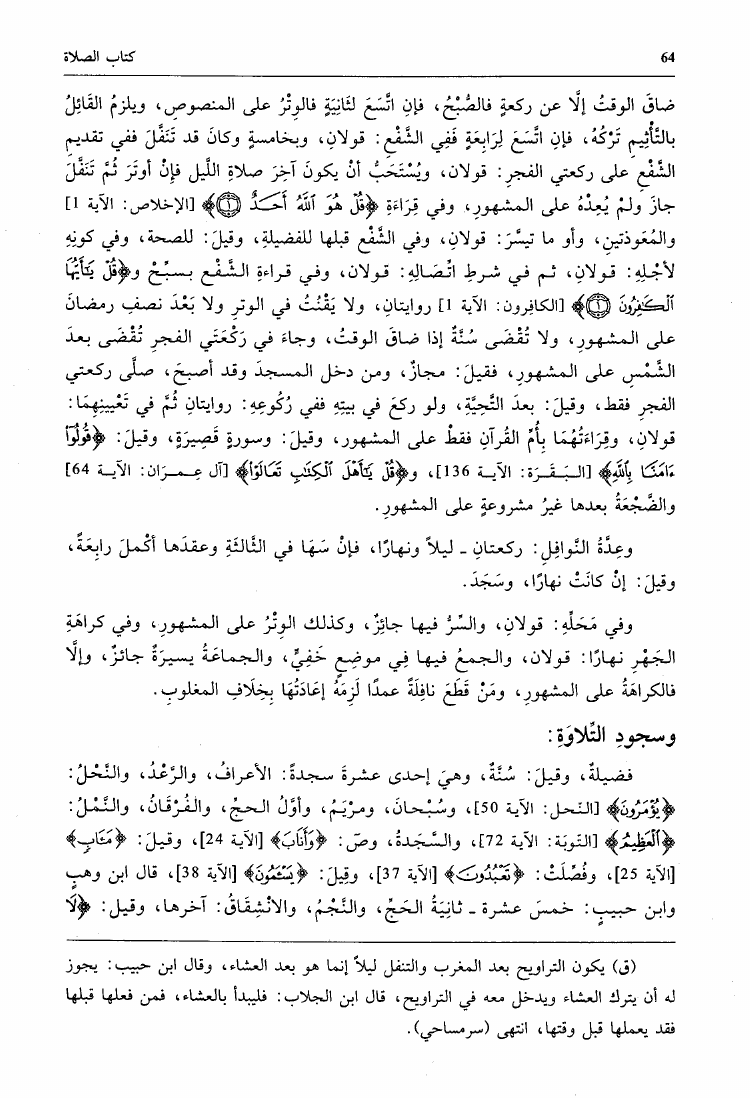 64 كتاب الصلاة
ضاقَ الوقتُ إلَّا عن ركعةٍ فالصُّبْحُ، فإنِ اتَّسَعَ لثَانِيَةٍ فالوِتْرُ على المنصوصِ، ويلزمُ القَائِلُ
بالتَّأْثِيمِ تَرْكُهُ، فإنِ اتَّسَعَ لِرَابِعَةٍ فَفِي الشَّفْعِ: قولانِ، وبخامسةٍ وكانَ قد تَنَفَّلَ ففي تقديمِ
الشَّفْعِ على ركعتي الفجرِ: قولان، ويُسْتَحَبُّ أنْ يكونَ آخِرَ صلاةِ اللَّيلِ فإنْ أوتَرَ ثُمَّ تَنَفَّلَ
جازَ ولمْ يُعِدْهُ على المشهورِ، وفي قِرَاءَةِ ﴿قُلْ هُوَ ٱللَّهُ أَحَدٌ ۝١﴾ [الإخلاص: الآية 1]
والمُعَوذتينِ، وأو ما تيسَّرَ: قولانِ، وفي الشَّفْعِ قبلها للفضيلةِ، وقيلَ: للصحة، وفي كونِهِ
لأجْلِهِ: قولانِ، ثم في شرطِ اتِّصَالِهِ: قولان، وفي قراءةِ الشَّفْعِ بسبِّحْ و﴿قُلْ يَٰٓأَيُّهَا
ٱلْكَٰفِرُونَ ۝١﴾ [الكافرون: الآية 1] روايتانِ، ولا يَقْنُتُ في الوترِ ولا بَعْدَ نصفِ رمضانَ
على المشهورِ، ولا تُقْضَى سُنَّةٌ إذا ضاقَ الوقتُ، وجاءَ في رَكْعَتَي الفجرِ تُقْضَى بعدَ
الشَّمْسِ على المشهورِ، فقيلَ: مجازٌ، ومن دخل المسجدَ وقد أصبحَ، صلَّى ركعتي
الفجرِ فقط، وقيلَ: بعدَ التَّحِيَّةِ، ولو ركعَ في بيتِهِ ففي رُكُوعِهِ: روايتانِ ثُمَّ في تَعْيينِهِمَا:
قولانِ، وقِرَاءَتُهُمَا بِأُمِّ القُرآنِ فقطْ على المشهور، وقيلَ: وسورةٍ قَصِيرَةٍ، وقيلَ: ﴿قُولُوٓا۟
ءَامَنَّا بِٱللَّهِ﴾ [البَقَرَة: الآية 136]، و﴿قُلْ يَٰٓأَهْلَ ٱلْكِتَٰبِ تَعَالَوْا۟﴾ [آل عِمرَان: الآية 64]
والضَّجْعَةُ بعدها غيرُ مشروعةٍ على المشهورِ.
وعِدَّةُ النَّوافِلِ: ركعتانِ ـ ليلاً ونهارًا، فإنْ سَهَا في الثَّالثَةِ وعقدَها أكْملَ رابعَةً،
وقيلَ: إنْ كانَتْ نهارًا، وسَجَدَ.
وفي مَحَلِّهِ: قولانِ، والسِّرُّ فيها جائِزٌ، وكذلك الوِتْرُ على المشهورِ، وفي كراهَةِ
الجَهْرِ نهارًا: قولان، والجمعُ فيها فِي موضِعٍ خَفِيٍّ، والجماعَةُ يسيرَةٌ جائزٌ، وإلَّا
فالكراهَةُ على المشهورِ، ومَنْ قَطَعَ نافِلَةً عمدًا لَزِمَهُ إعَادَتُهَا بِخِلَافِ المغلوبِ.
وسجودِ التِّلاوَةِ:
فضيلةٌ، وقيلَ: سُنَّةٌ، وهيَ إحدى عشرةَ سجدةً: الأعرافُ، والرَّعْدُ، والنَّحْلُ:
﴿يُؤْمَرُونَ﴾ [النّحل: الآية 50]، وسُبْحانَ، ومرْيَمُ، وأوَّلُ الحجِّ، والفُرْقَانُ، والنَّمْلُ:
﴿ٱلْعَظِيمُ﴾ [التّوبَة: الآية 72]، والسَّجَدةُ، وصَ: ﴿وَأَنَابَ﴾ [الآية 24]، وقيلَ: ﴿مَـَٔابٍ﴾
[الآية 25]، وفُصِّلَتْ: ﴿تَعْبُدُونَ﴾ [الآية 37]، وقِيلَ: ﴿يَسْـَٔمُونَ﴾ [الآية 38]، قال ابن وهبٍ
وابن حبيبٍ: خمسَ عشرة ـ ثانِيَةُ الحَجِّ، والنَّجْمُ، والانْشِقَاقُ: آخرها، وقيل: ﴿لَا
(ق) يكون التراويح بعد المغرب والتنفل ليلاً إنما هو بعد العشاء، وقال ابن حبيب: يجوز
له أن يترك العشاء ويدخل معه في التراويح، قال ابن الجلاب: فليبدأ بالعشاء، فمن فعلها قبلها
فقد يعملها قبل وقتها، انتهى (سرمساحي).